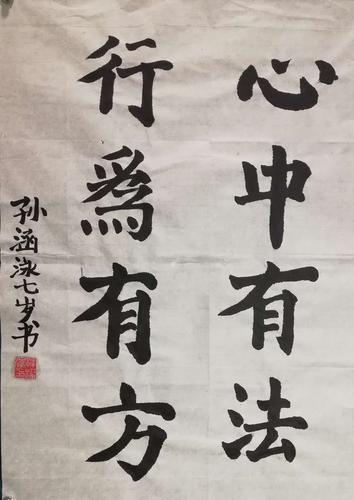 心中有法
行爲有方
孙涵泳七岁书